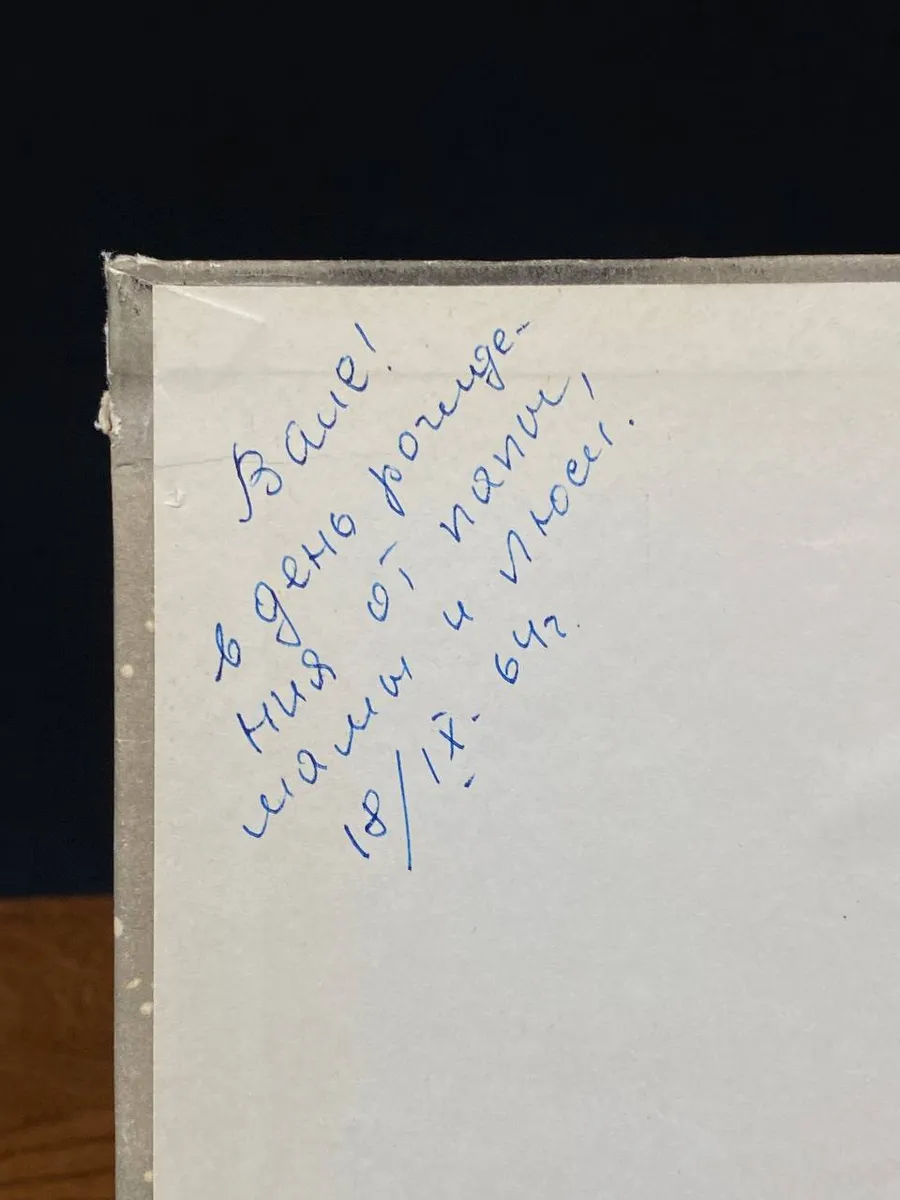 Вале!
в день рожде-
ния от папы,
мамы и Люси.
18/IX. 64г.